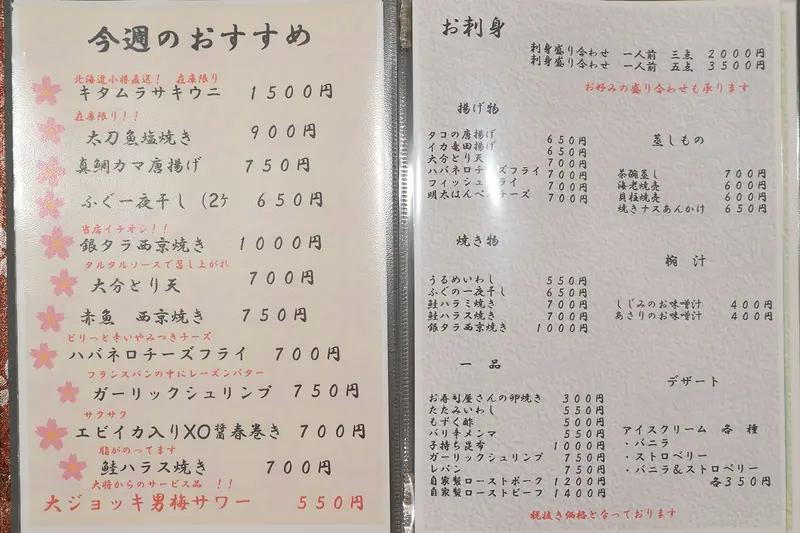 今週のおすすめ
北海道小樽直送！ 在庫限り
キタムラサキウニ 1500円
在庫限り！！
太刀魚塩焼き 900円
真鯛カマ唐揚げ 750円
ふぐ一夜干し (2ケ 650円
当店イチオシ！！
銀タラ西京焼き 1000円
タルタルソースで召し上がれ
大分とり天 700円
赤魚 西京焼き 750円
ピリっと辛いやみつきチーズ
ハバネロチーズフライ 700円
フランスパンの中にレーズンバター
ガーリックシュリンプ 750円
サクサク
エビイカ入りXO醤春巻き 700円
脂がのってます
鮭ハラス焼き 700円
大将からのサービス品 ！！
大ジョッキ男梅サワー 550円
お刺身
刺身盛り合わせ 一人前 三点 2000円
刺身盛り合わせ 一人前 五点 3500円
お好みの盛り合わせも承ります
揚げ物
タコの唐揚げ 650円
イカ竜田揚げ 650円
大分とり天 700円
ハバネロチーズフライ 700円
フィッシュフライ 700円
明太はんぺんチーズ 700円
蒸しもの
茶碗蒸し 700円
海老焼売 600円
貝柱焼売 600円
焼きナスあんかけ 650円
焼き物
うるめいわし 550円
ふぐの一夜干し 650円
鮭ハラミ焼き 700円
鮭ハラス焼き 700円
銀タラ西京焼き 1000円
椀 汁
しじみのお味噌汁 400円
あさりのお味噌汁 400円
一 品
お寿司屋さんの卵焼き 300円
たたみいわし 550円
もずく酢 500円
バリ辛メンマ 550円
子持ち昆布 1000円
ガーリックシュリンプ 750円
レバン 750円
自家製ローストポーク 1200円
自家製ローストビーフ 1400円
デザート
アイスクリーム 各種
・バニラ
・ストロベリー
・バニラ&ストロベリー
各350円
税抜き価格となっております